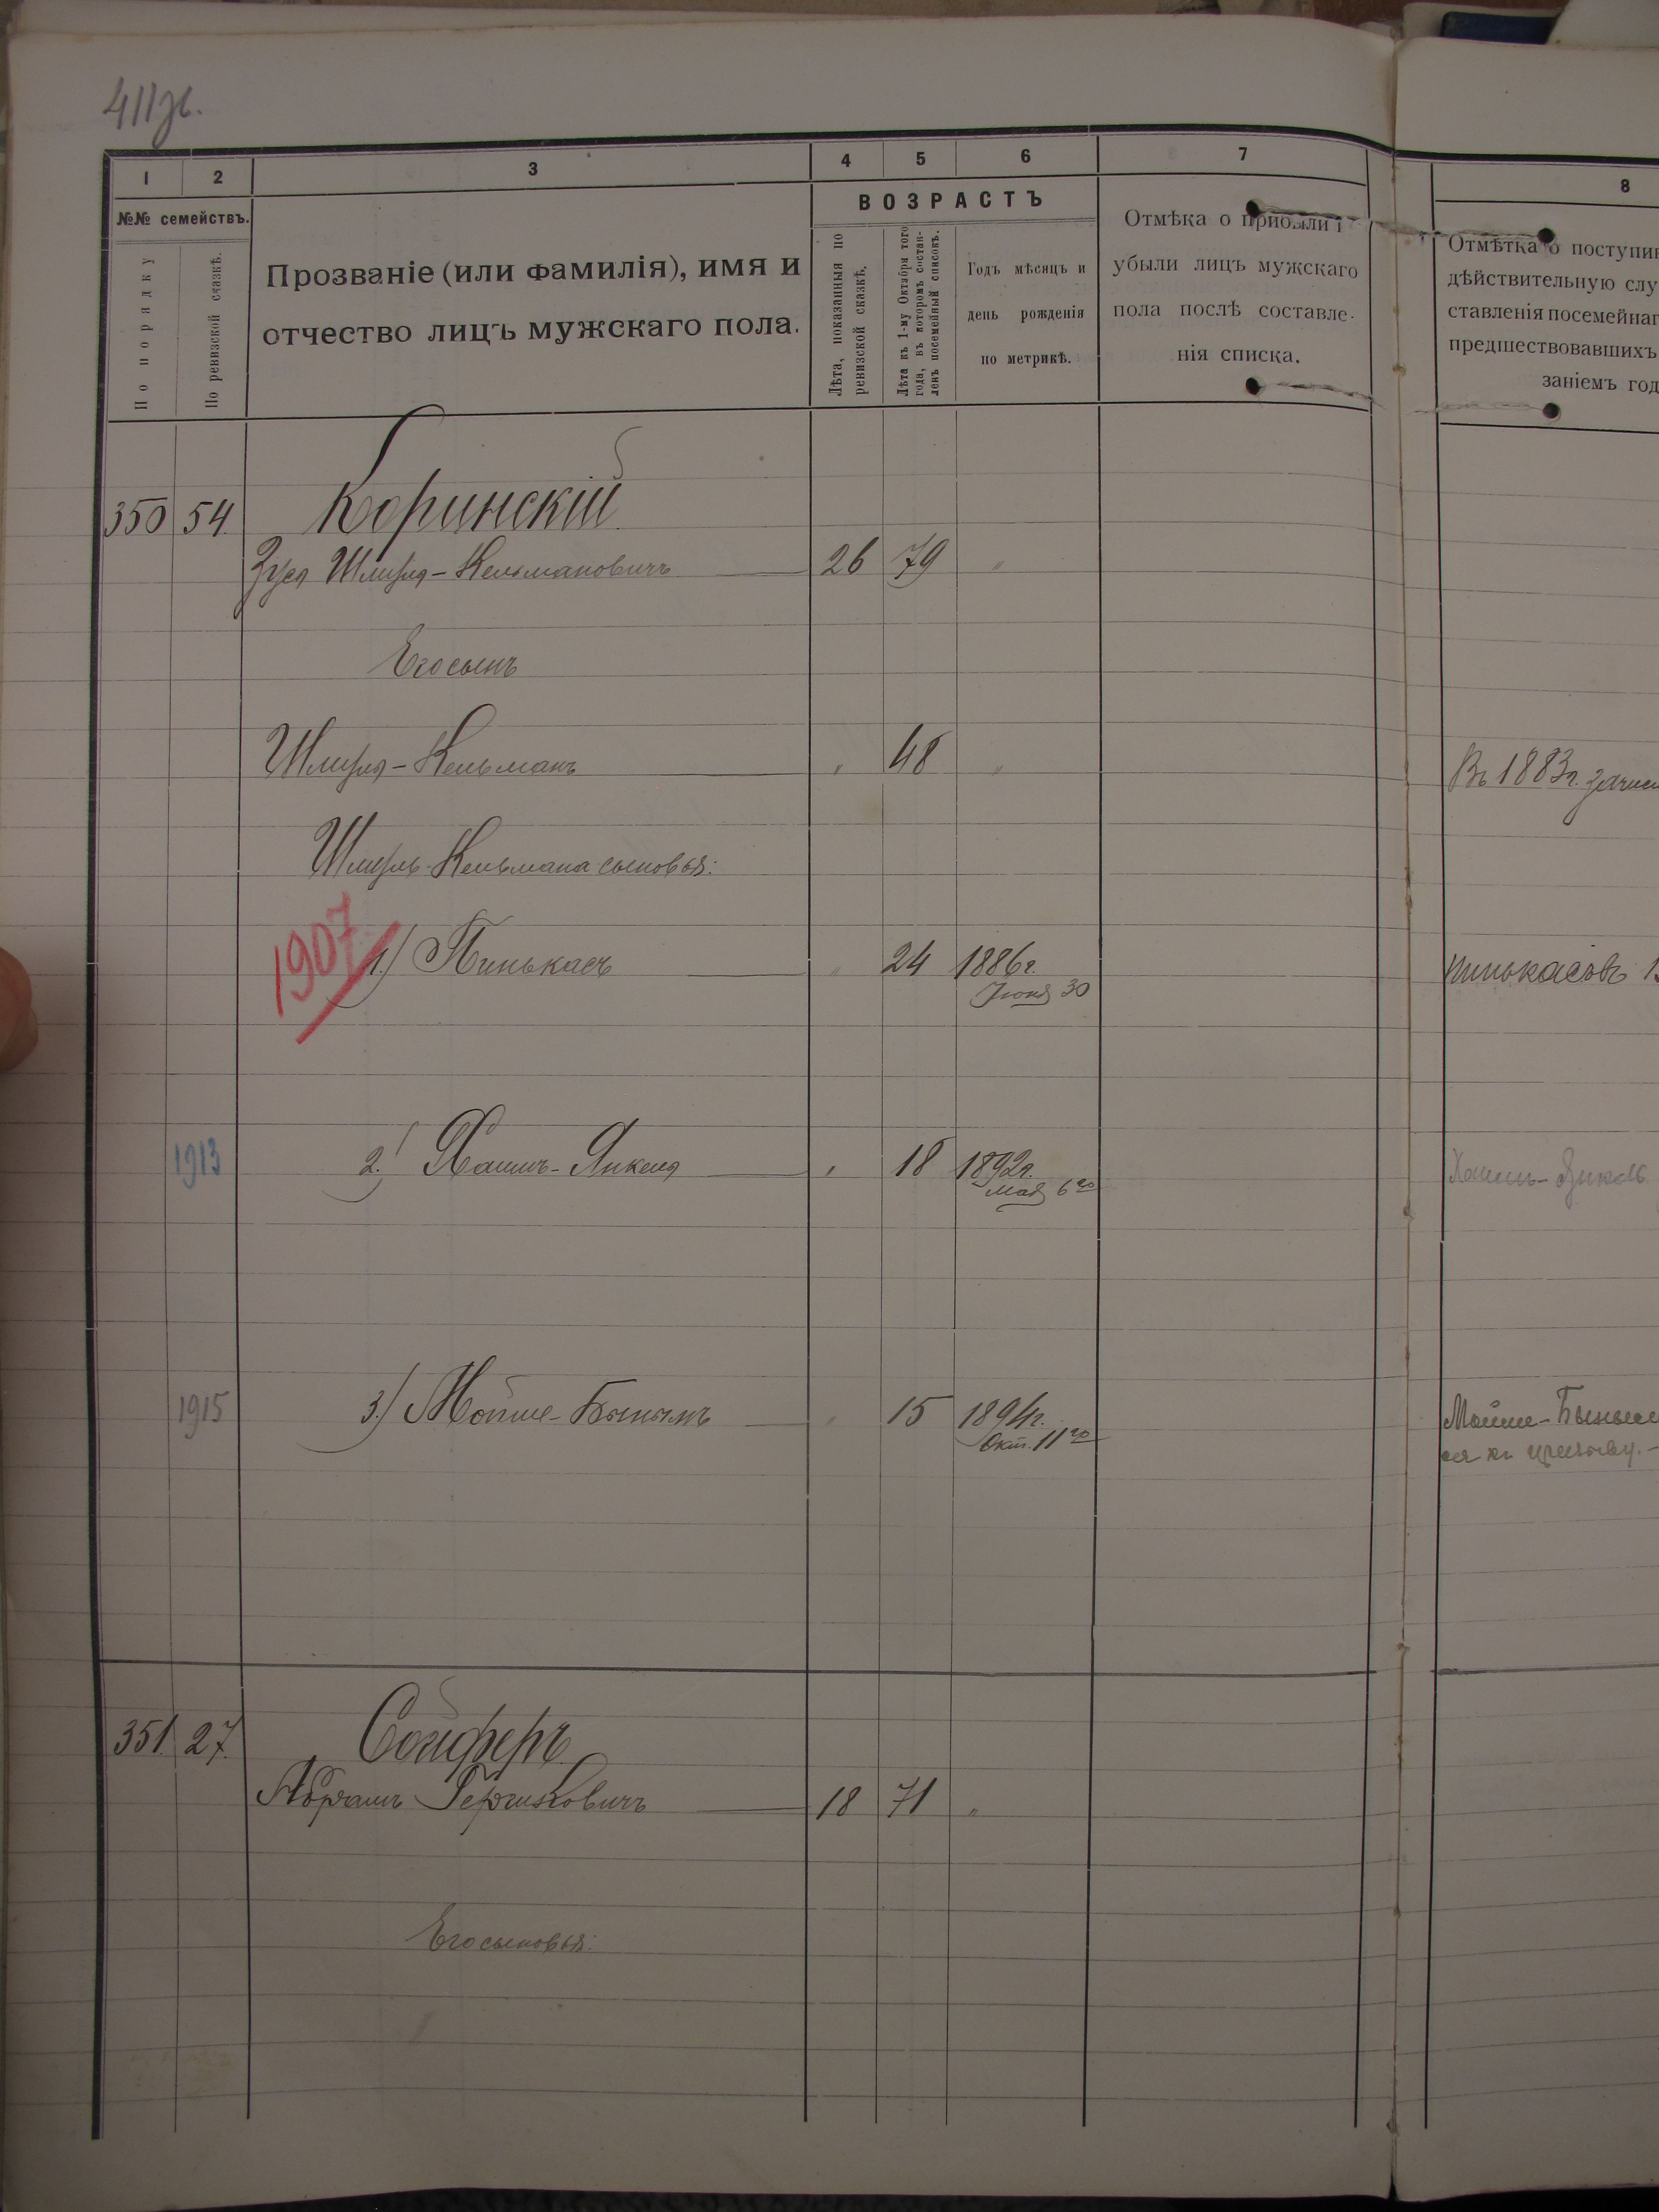 411
1
2
3
4
5
6
7
8
№№ семействъ.
По порядку
По ревизской сказкѣ.
Прозваніе (или фамилія), имя и
отчество лицъ мужскаго пола.
ВОЗРАСТЪ
Лѣта, показанныя по
ревизской сказкѣ.
Лѣта къ 1-му Октября того
года, въ которомъ состав-
ленъ посемейный списокъ.
Годъ мѣсяцъ и
день рожденія
по метрикѣ.
Отмѣка о прибыли и
убыли лицъ мужскаго
пола послѣ составле-
нія списка.
Отмѣтка о поступи
дѣйствительную слу
ставленія посемейнаг
предшествовавшихъ
заніемъ год
350 54. Коринскій
Зуся Шмуля-Кельмановичъ 26 79 "
Его сынъ
Шмуля-Кельманъ " 48 "
Въ 1883г. зачис
Шмуль-Кельмана сыновья:
1907 1.) Пинькасъ " 24 1886г.
Іюня 30
Пинькасовъ
1913 2.) Хаимъ-Янкель " 18 1892г.
Мая 6го
Хаимъ-Янкель
1915 3.) Мойше-Бынымъ " 15 1894г.
Окт. 11го
Мойше-Быным
ся къ призыву. -
351. 27. Сойферъ
Абрамъ Гершковичъ 18 71 "
Его сыновья: